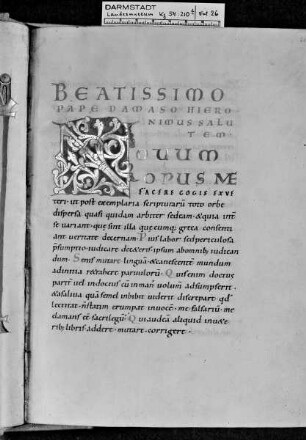 DARMSTADT
Landesmuseum Kg 54:210 Fol 26
BEATISSIMO
PAPE DAMASO HIERO
NIMUS SALU
TEM
NOUUM
OPUS ME
FACERE COGIS EX VE
teri· ut post exemplaria scripturarū toto orbe
dispersa quasi quidam arbiter sedeam· & quia int se
se variant· que sint illa que cum greca consenti
ant veritate decernam· Pius labor· sed periculosa
presumptio· iudicare de ceteris ipsum ab omnib; iudican
dum· Senis mutare linguā· & canescentē mundum
ad initia retrahere parvulorū· Quis enim doctus
pariter vel indoctus cū in manū volum adsumpserit·
& a saliva quā semel inbibit viderit discrepare qd
lectitat· n statim erumpat in vocē· me falsariū· me
clamans eē sacrilegū· Qui audeā aliquid in ve&e
rib; libris addere· mutare· corrigere·